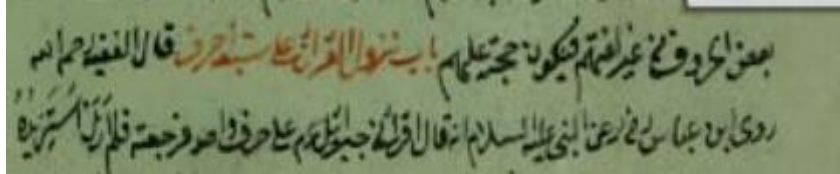 بعض الحروف في غير لغتهم فيكون حجة عليهم باب نزول القرآن على سبعة أحرف قال الفقيه رحمه الله
روى ابن عباس رض عن النبي عليه السلام انه قال اقرأني جبرائيل عم على حرف واحد فرجعته فلم أزل أستزيده